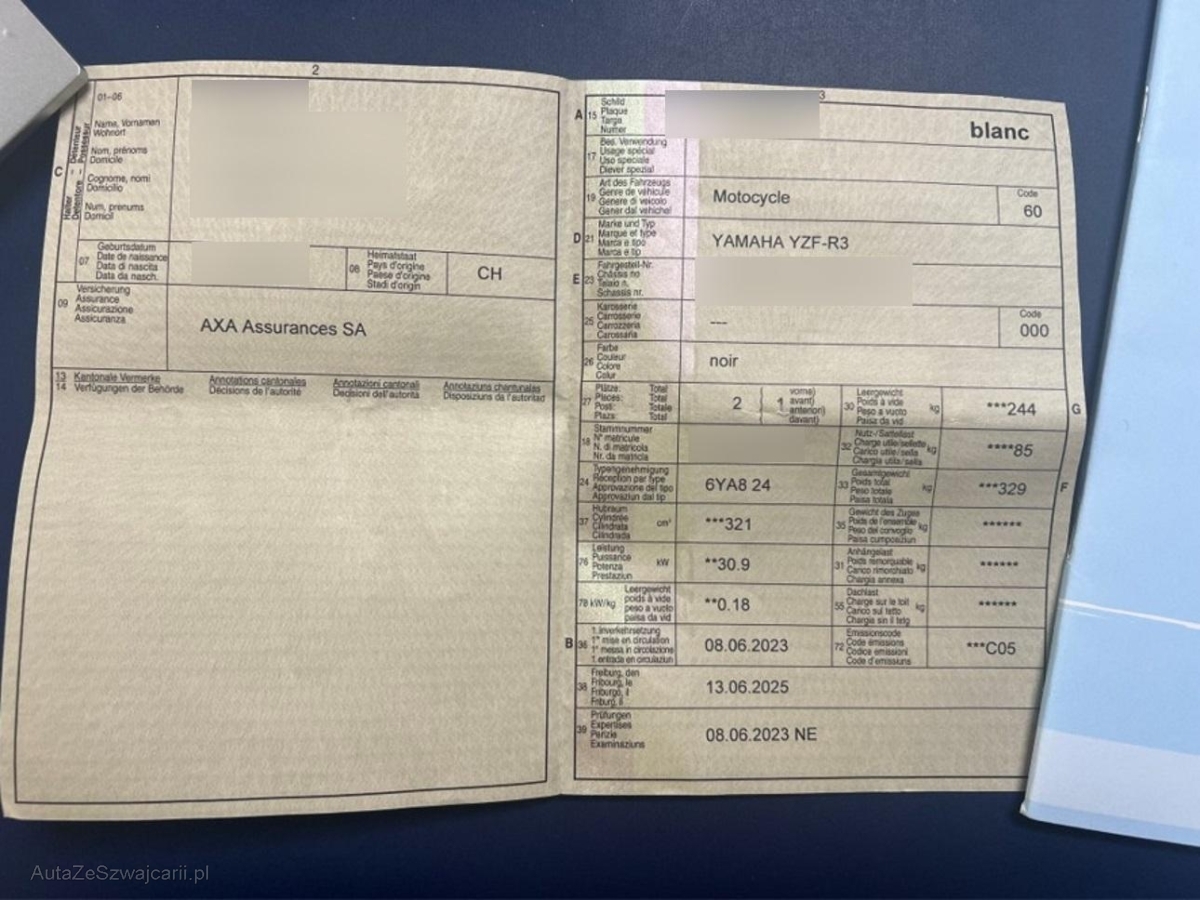 2
01-06
Name, Vornamen
Wohnort
Nom, prénoms
Domicile
Cognome, nomi
Domicilio
Num, prenums
Domicil
C
Halter
Détenteur
Detentore
Possessur
07
Geburtsdatum
Date de naissance
Data di nascita
Data da nasch.
08
Heimatstaat
Pays d'origine
Paese d'origine
Stadi d'origin
CH
09
Versicherung
Assurance
Assicurazione
Assicuranza
AXA Assurances SA
13 Kantonale Vermerke
14 Verfügungen der Behörde
Annotations cantonales
Décisions de l'autorité
Annotazioni cantonali
Decisioni dell'autorità
Annotaziuns chantunalas
Disposiziuns da l'autoritad
3
A 15
Schild
Plaque
Targa
Numer
blanc
17
Bes. Verwendung
Usage spécial
Uso speciale
Diever spezial
19
Art des Fahrzeugs
Genre de véhicule
Genere di veicolo
Gener dal vehichel
Motocycle
Code
60
D 21
Marke und Typ
Marque et type
Marca e tipo
Marca e tip
YAMAHA YZF-R3
E 23
Fahrgestell-Nr.
Châssis no
Telaio n.
Schassis nr.
25
Karosserie
Carrosserie
Carrozzeria
Carossaria
---
Code
000
26
Farbe
Couleur
Colore
Colur
noir
27
Plätze: Total
Places: Total
Posti: Totale
Plazs: Total
2
1
vorne)
avant)
anteriori)
davant)
30
Leergewicht
Poids à vide
Peso a vuoto
Paisa da vid
kg
***244
G
18
Stammnummer
N° matricule
N. di matricola
Nr. da matricla
32
Nutz-/Sattellast
Charge utile/sellette
Carico utile/sella
Chargia utila/sella
kg
****85
24
Typengenehmigung
Réception par type
Approvazione del tipo
Approvaziun dal tip
6YA8 24
33
Gesamtgewicht
Poids total
Peso totale
Paisa totala
kg
***329
F
37
Hubraum
Cylindrée
Cilindrata
Cilindrada
cm³
***321
35
Gewicht des Zuges
Poids de l'ensemble
Peso del convoglio
Paisa cumposiziun
kg
******
76
Leistung
Puissance
Potenza
Prestaziun
kW
**30.9
31
Anhängelast
Poids remorquable
Carico rimorchiato
Chargia annexa
kg
******
78 kW/kg
Leergewicht
poids à vide
peso a vuoto
paisa da vid
**0.18
55
Dachlast
Charge sur le toit
Carico sul tetto
Chargia sin il tetg
kg
******
B 36
1. Inverkehrsetzung
1re mise en circulation
1a messa in circolazione
1. entrada en circulaziun
08.06.2023
72
Emissionscode
Code émissions
Codice emissioni
Code d'emissiuns
***C05
38
Freiburg, den
Fribourg, le
Friburgo, il
Friburg, il
13.06.2025
39
Prüfungen
Expertises
Perizie
Examinaziuns
08.06.2023 NE
AutaZeSzwajcarii.pl